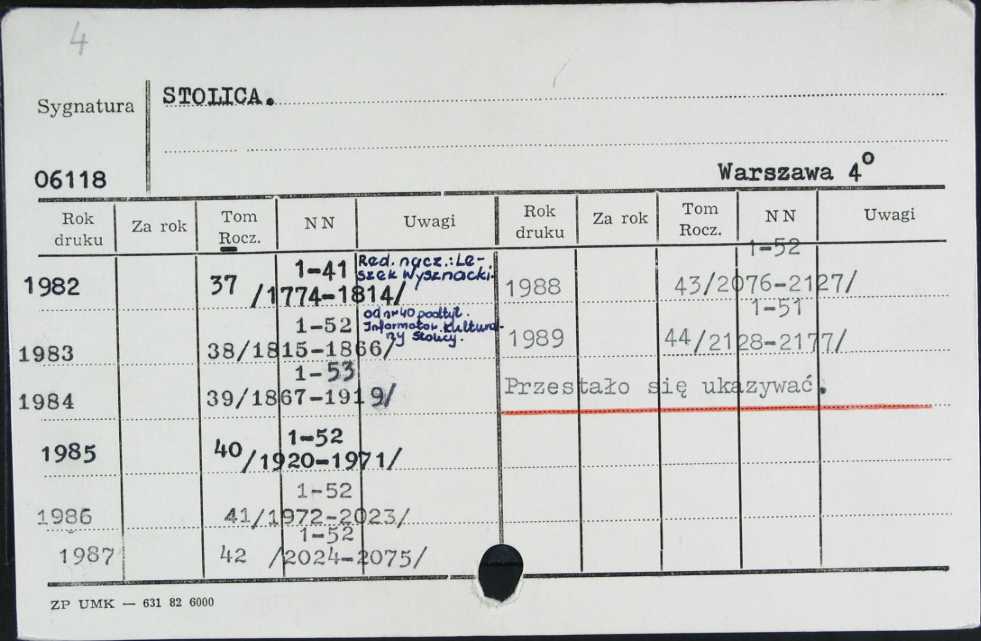 4
Sygnatura STOLICA.
06118 Warszawa 4°
Rok druku Za rok Tom Rocz. NN Uwagi Rok druku Za rok Tom Rocz. NN Uwagi
1982 37 1-41 /1774-1814/ Red. nacz.: Le-
szek Wysznacki.
od nr 40 podtyt.
Informator Kultural-
ny Stolicy.
1983 1-52
38/1815-1866/
1984 1-53
39/1867-1919/
1985 40 1-52
/1920-1971/
1986 1-52
41/1972-2023/
1987 42 1-52
/2024-2075/
1988 1-52
43/2076-2127/
1989 1-51
44/2128-2177/
Przestało się ukazywać.
ZP UMK — 631 82 6000